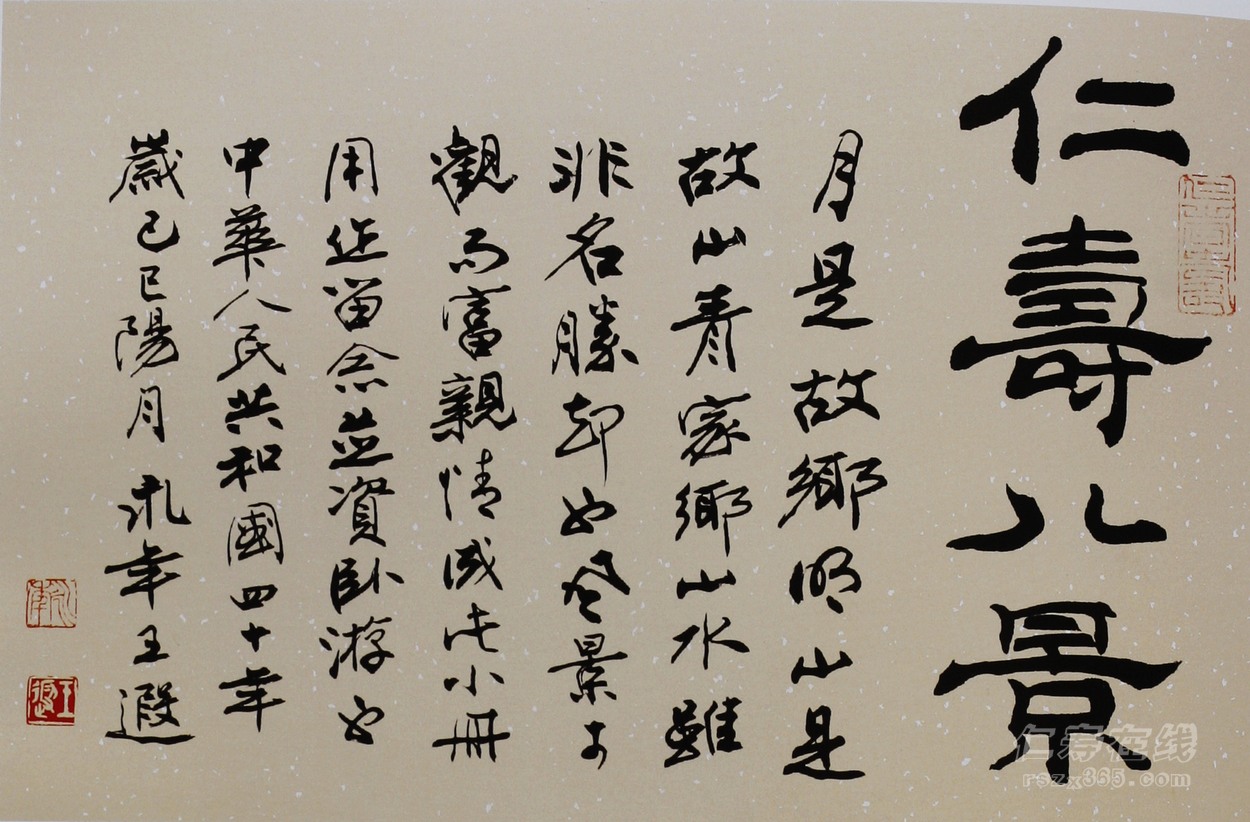 仁壽八景
月是故鄉明山是
故山青家鄉山水雖
非名勝却也風景可
觀而富親情成此小冊
用作留念並資卧游也
中華人民共和國四十年
歲己巳陽月 年王遐
仁者壽
王遐
仁寿在线
rszx365.com